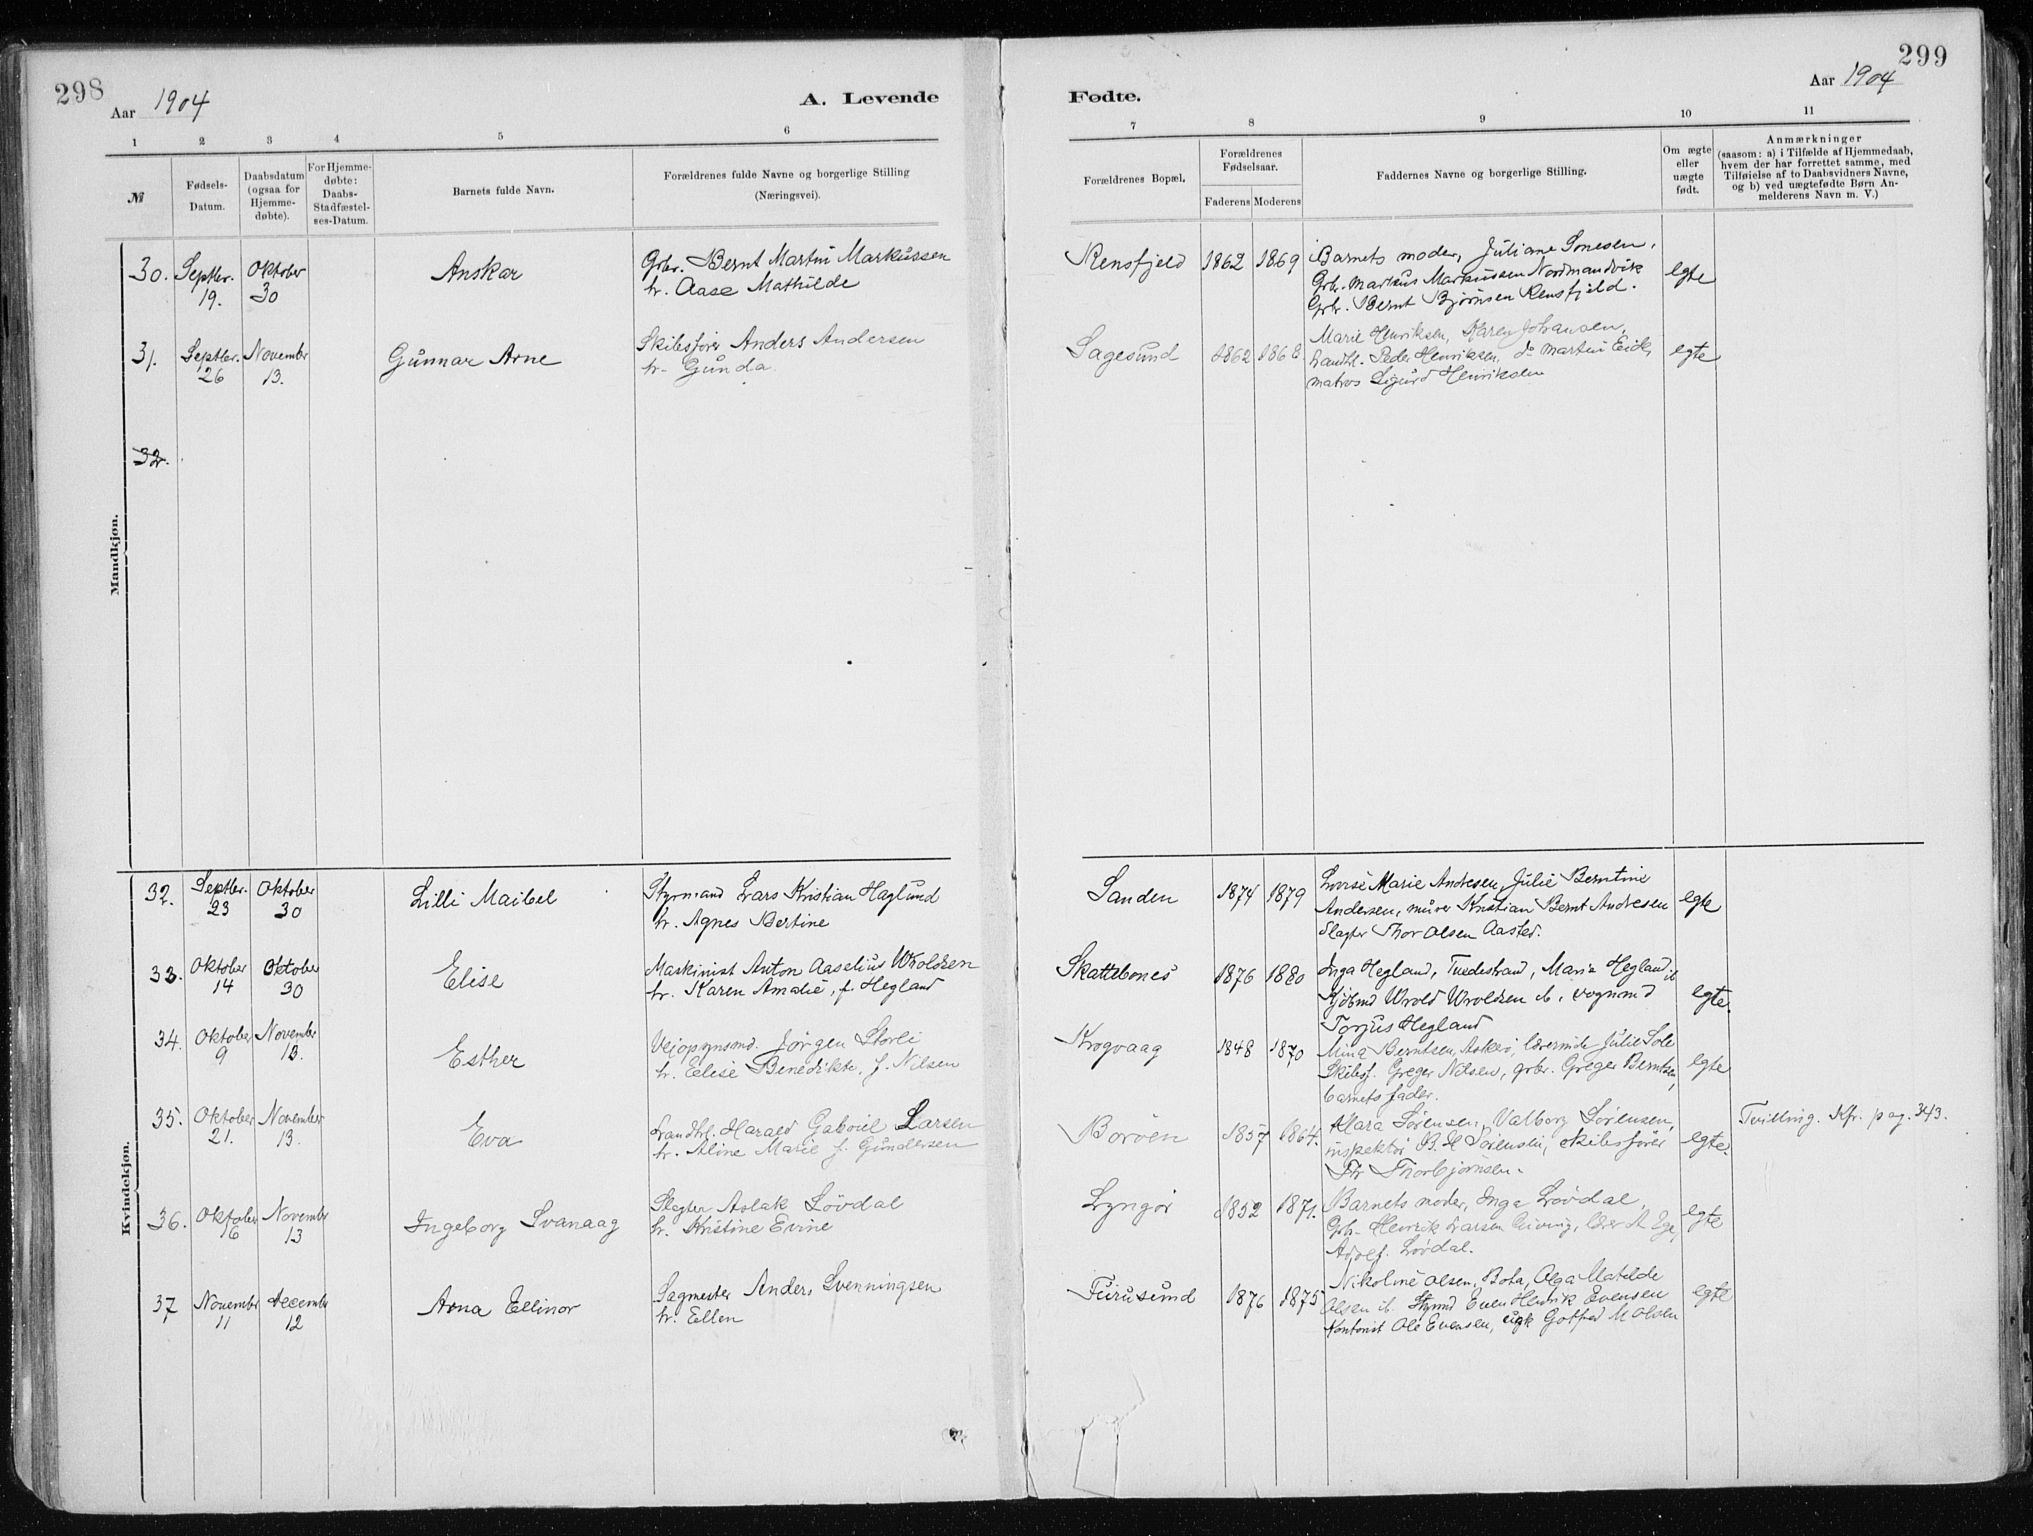 298
Aar 1904
A. Levende
1 2 3 4 5 6
№
Fødsels-
Datum.
Daabsdatum
(ogsaa for
Hjemme-
døbte).
For Hjemme-
døbte:
Daabs-
Stadfæstel-
ses-Datum.
Barnets fulde Navn.
Forældrenes fulde Navne og borgerlige Stilling
(Næringsvei).
Mandkjøn.
30. Septbr. Oktober Anskar Gbr. Bernt Martin Markussen
19. 30 h. Aase Mathilde
31. Septbr. November Gunnar Arne Skibsfører Anders Andersen
26 13. h. Gunda
32.
Kvindekjøn.
32. Septbr. Oktober Lilli Maibel Styrmand Lars Kristian Haglund
23 30 h. Agnes Bertine
33. Oktober Oktober Elise Maskinist Anton Aaselius Wroldsen
14 30 h. Karen Amalie, f. Hegland
34. Oktober November Esther Veiopsynsmd. Jørgen Storli
9 13. h. Elise Benedikte, f. Nilsen
35. Oktober November Eva Landhl. Harald Gabriel Larsen
21. 13. h. Aline Marie f. Gundersen
36. Oktober November Ingeborg Svanaag Slagter Aslak Løvdal
16 13 h. Kristine Evine
37 November December Arna Ellinor Sagmester Anders Svenningsen
11 12 h. Ellen
299
Aar 1904
Fødte.
7 8 9 10 11
Forældrenes Bopæl.
Forældrenes
Fødselsaar.
Faderens Moderens
Faddernes Navne og borgerlige Stilling.
Om ægte
eller
uægte
født.
Anmærkninger
(saasom: a) i Tilfælde af Hjemmedaab,
hvem der har forrettet samme, med
Tilføielse af to Daabsvidners Navne,
og b) ved uægtefødte Børn An-
melderens Navn m. V.)
Rensfjeld 1862 1869 Barnets moder, Juliane Sonesen,
Gbr. Markus Markussen Nordmandvik egte
Gbr. Bernt Bjørnsen Rensfjeld.
Sagesund 1862 1868. Marie Henriksen, Karen Johansen,
Landhl. Peder Henriksen, do Martin Eick, egte
matros Sigurd Henriksen
Sanden 1874 1879 Lovise Marie Andresen, Julie Berntine
Andersen, murer Kristian Bernt Andresen egte
Slagter Thor Olsen Aasted.
Skattebones 1876 1880 Inga Hegland, Tvedestrand, Marie Hegland ib
Kjøbmd Wrold Wroldsen ib, vognmd egte.
Torjus Hegland
Krogvaag 1848 1870 Mina Berntsen, Askerø, lærerinde Julie Sole
Skibsf. Greger Nilsen, gbr. Greger Berntsen, egte
barnets fader.
Borøen 1857 1864. Klara Sørensen, Valborg Sørensen, Tvilling. Kfr. pag. 343.
inspektør B. H Sørensen, skibsfører egte.
Fr Thorbjørnsen.
Lyngør 1852 1871. Barnets moder, Inga Løvdal,
Gbr. Henrik Larsen Giving, lærer A Ege, egte
Adolf Løvdal.
Furusund 1876 1875 Nikoline Olsen, Bota, Olga Matilde
Olsen ib. Styrmd Even Henrik Evensen egte
Kontorist Ole Evensen, ungk Gotfred M Olsen